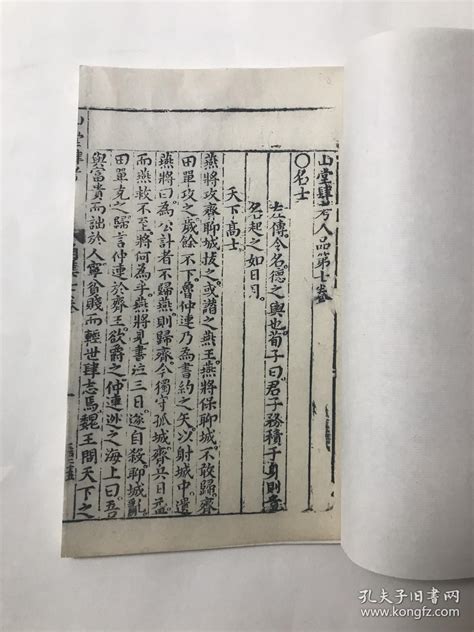 山堂肆考人品第七卷
○名士
左傳令名德之輿也荀子曰君子務積于身則
名起之如日月
天下高士
燕將攻齊聊城拔之或譖之燕王燕將保聊城不敢歸齊
田單攻之歲餘不下魯仲連乃爲書約之矢以射城中遺
燕將曰爲公計者不歸燕則歸齊今獨守孤城齊兵日益
而燕救不至將何為乎燕將見書泣三日遂自殺聊城亂
田單克之歸言仲連於齊王欲爵之仲連逃之海上曰吾
與富貴而詘於人寧貧賤而輕世肆志焉魏王問天下之
山堂肆考
孔夫子旧书网
www.kongfz.com